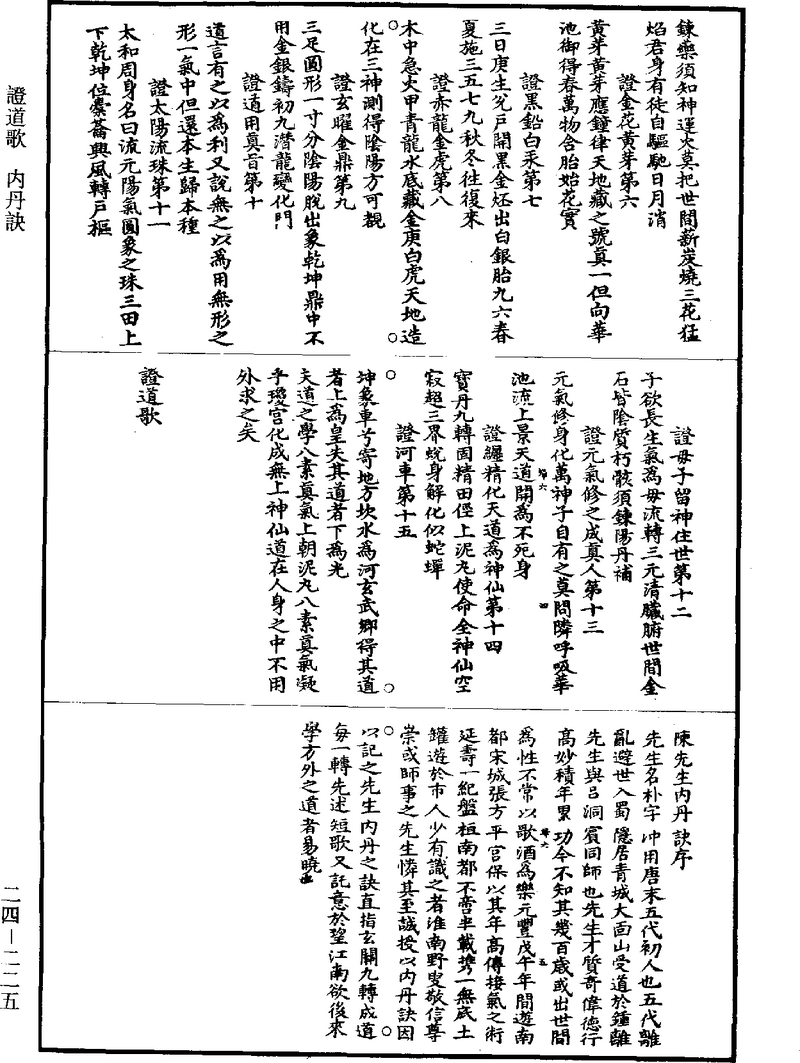 證道歌　內丹訣
二四—二二五
鍊藥須知神運火莫把世間薪炭燒三花猛
焰君身有徒自驅馳日月消
證金花黃芽第六
黃芽黃芽應鐘律天地藏之號真一但向華
池御得春萬物含胎始花實
證黑鉛白汞第七
三日庚生兌戶開黑金坯出白銀胎九六春
夏施三五七九秋冬往復來
證赤龍金虎第八
木中急火甲青龍水底藏金庚白虎天地造
化在三神測得陰陽方可覩
證玄曜金鼎第九
三足圓形一寸分陰陽脫出象乾坤鼎中不
用金銀鑄初九潛龍變化門
證道用真旨第十
道言有之以為利又說無之以為用無形之
形一氣中但還本生歸本種
證太陽流珠第十一
太和周身名曰流元陽氣圓象之珠三田上
下乾坤位橐籥與風轉戶樞
證毋子留神住世第十二
子欲長生氣為毋流轉三元清臟腑世間金
石皆陰質朽骸須鍊陽丹補
證元氣修之成真人第十三
元氣修身化萬神子自有之莫問隣呼吸華
池流上景天道開為不死身
證纒精化天道為神仙第十四
寶丹九轉固精田徑上泥丸使命全神仙空
寂超三界蛻身解化似蛇蟬
證河車第十五
坤象車兮寄地方坎水為河玄武鄉得其道
者上為皇失其道者下為光
夫道之學八素真氣上朝泥丸八素真氣凝
乎瓊宮化成無上神仙道在人身之中不用
外求之矣
證道歌
陳先生內丹訣序
先生名朴字冲用唐末五代初人也五代離
亂避世入蜀隱居青城大面山受道於鍾離
先生與吕洞賓同師也先生才質奇偉德行
高妙積年累功今不知其幾百歲或出世間
為性不常以歌酒為樂元豐戊午年間遊南
都宋城張方平官保以其年高傳接氣之術
延壽一紀盤桓南都不啻半載携一無底土
罐遊於市人少有識之者淮南野叟敬信尊
崇或師事之先生憐其至誠授以內丹訣因
以記之先生內丹之訣直指玄關九轉成道
每一轉先述短歌又託意於望江南欲後來
學方外之道者易曉也